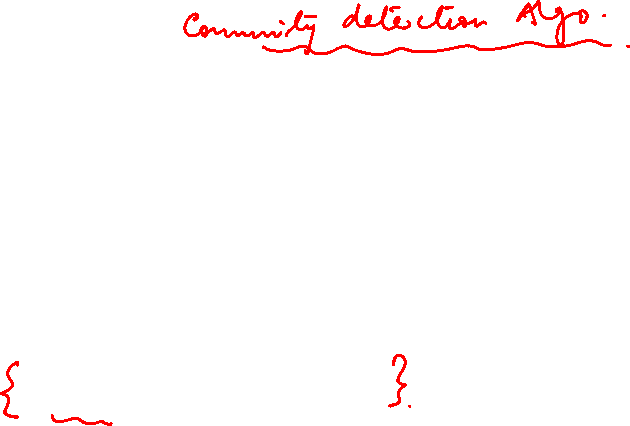 Community detection Algo.
{ }.